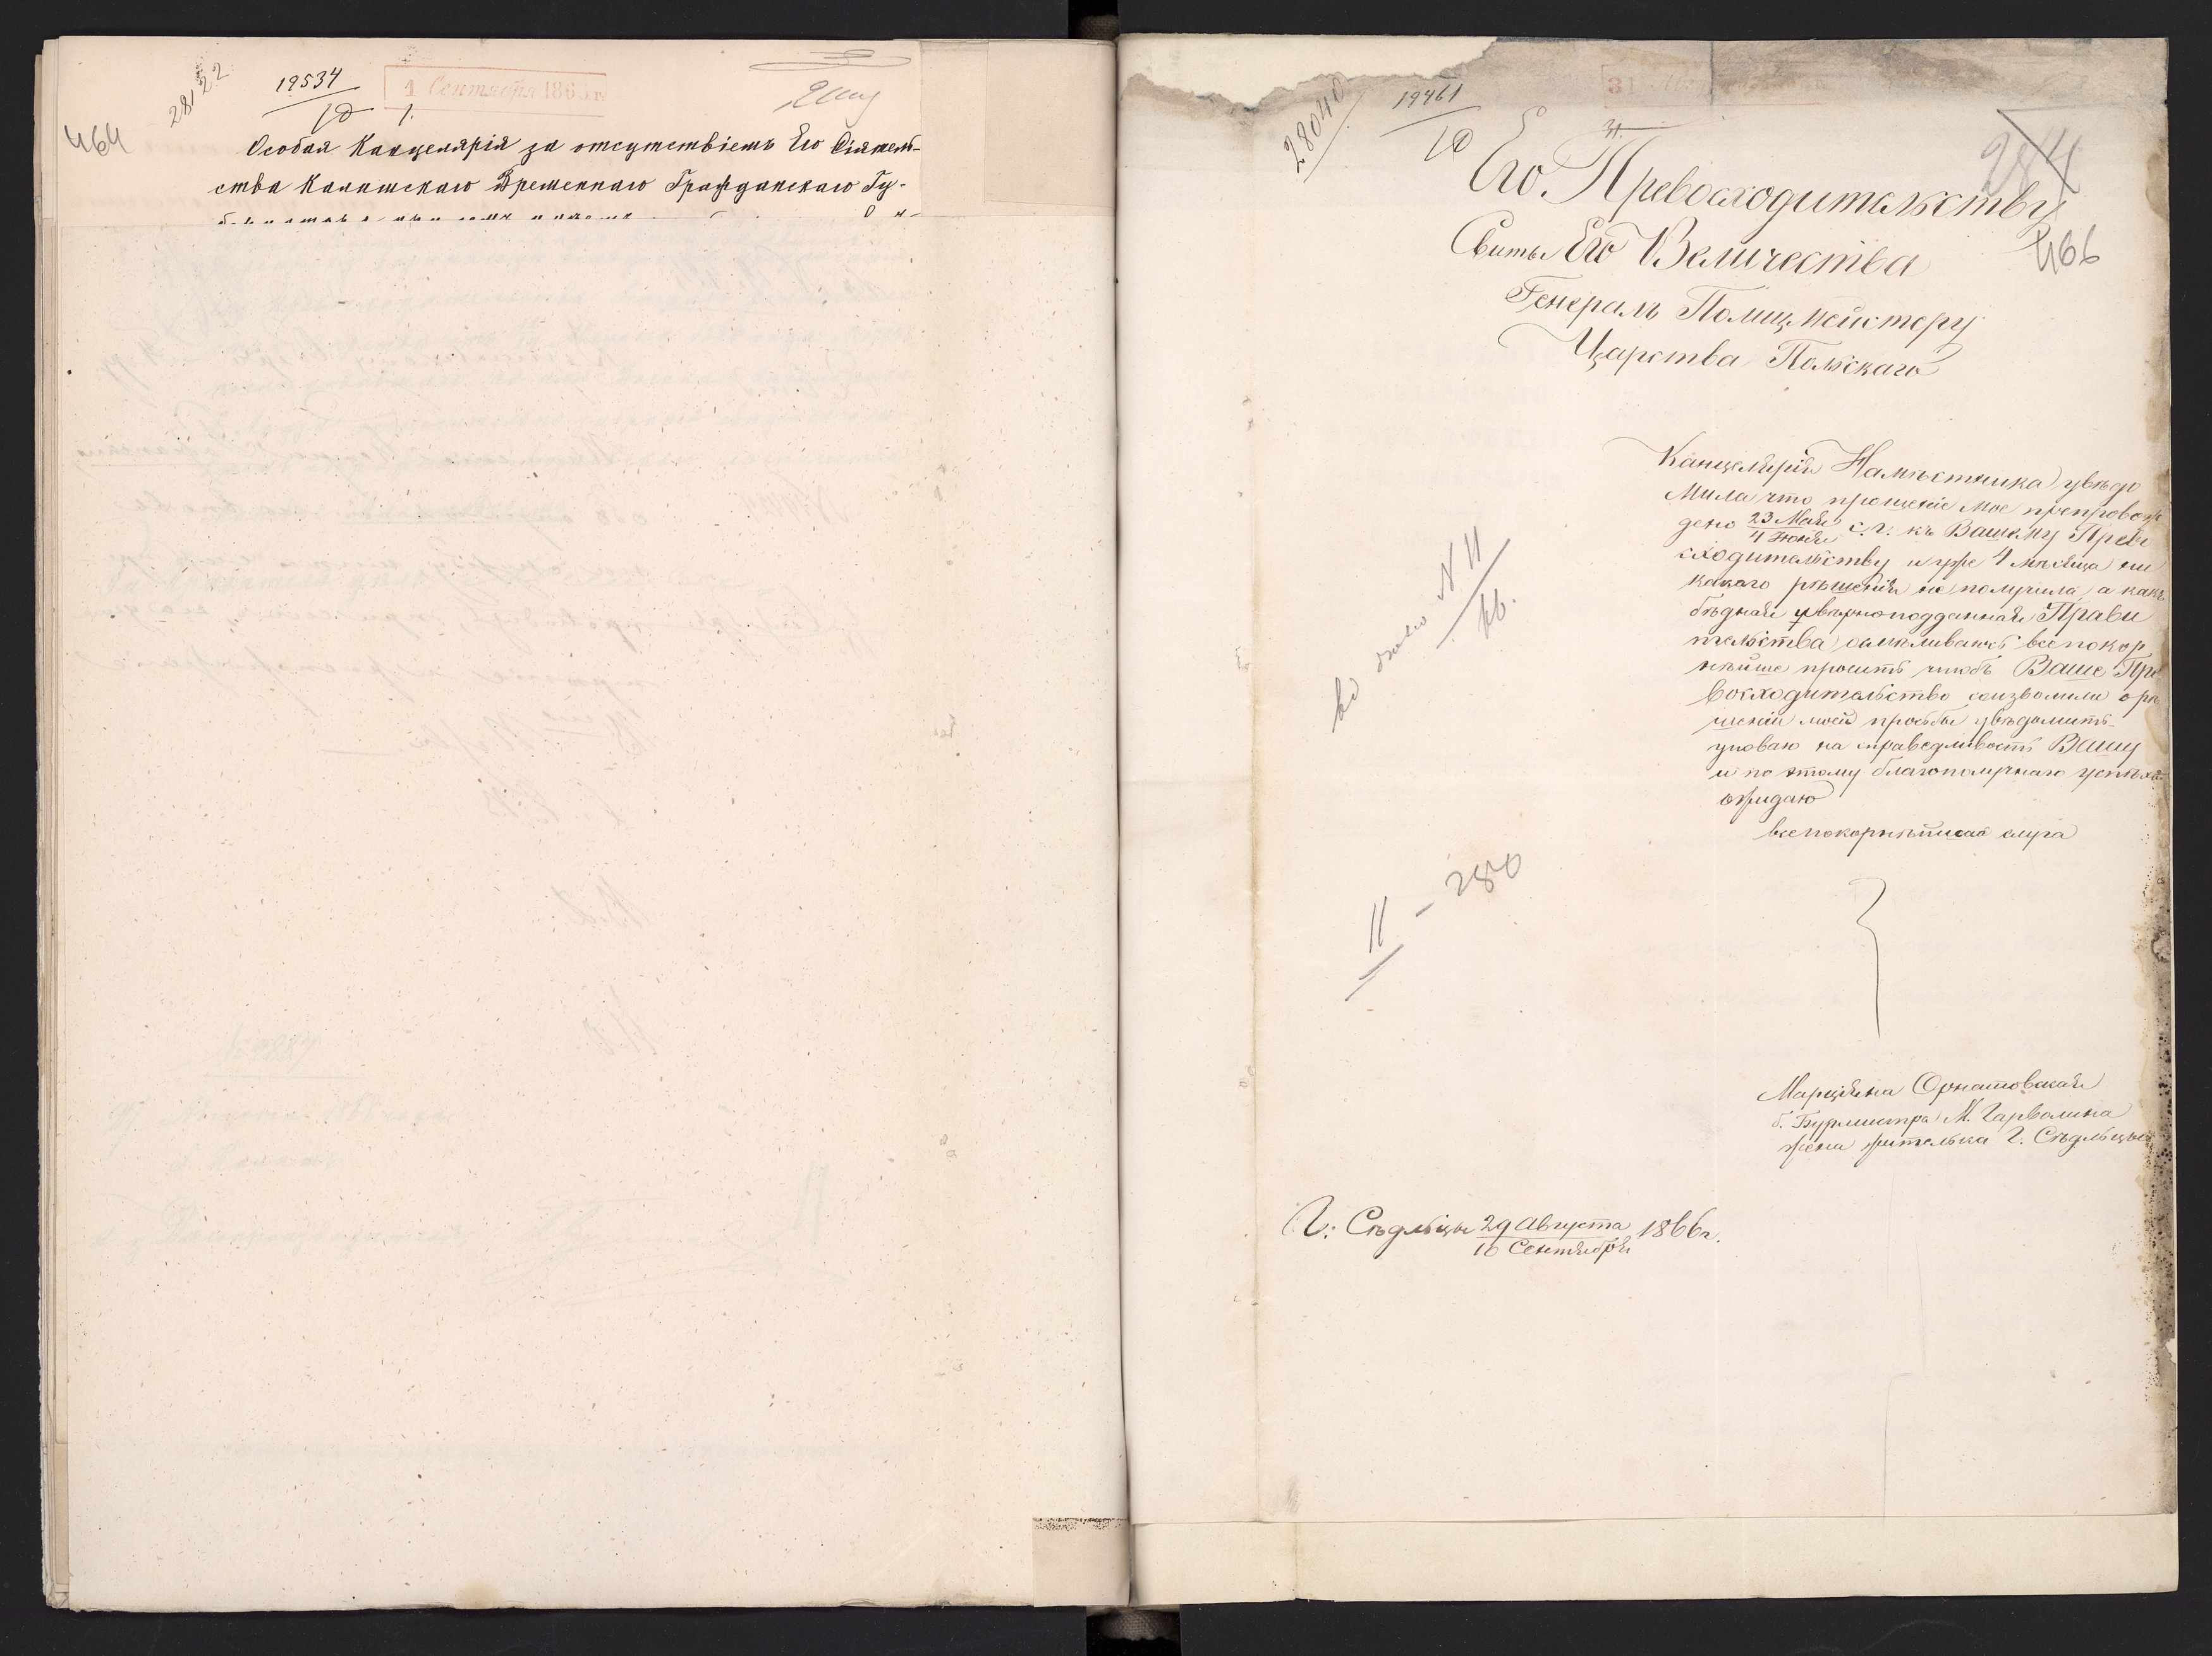 464
28122
19534
10 1.
1 Сентября 186
Особая Канцелярія за отсутствіемъ Его Сіятель-
ства Калишскаго Временнаго Гражданскаго Гу-
28040
19461
10
31
31.
284
466
Его Превосходительству
Свиты Его Величества
Генералъ Полицмейстеру
Царства Польскаго
Канцелярія Намѣстника увѣдо
мила что прошеніе мое препровож
дено 23 Мая/4 Іюня с. г. къ Вашему Прево
сходительству и уже 4 мѣсяца ни
какого рѣшенія не получила, а какъ
бѣдная и вѣрноподданная Прави
тельства осмѣливаюсь всепокор
нѣйше просить чтобъ Ваше Пре
восходительство соизволили о рѣ
шеніи моей просьбы увѣдомить
уповаю на справедливость Вашу
и по этому благополучнаго успѣха
ожидаю
всепокорнѣйшая слуга
N 11
11 - 280
Марціянна Орнатовская
б. Бурмистра М. Гарволина
жена жителька Г. Сѣдльцы
Г: Сѣдльцы 29 Августа/10 Сентября 1866 г.